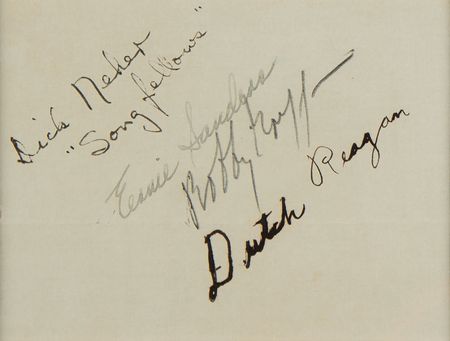 Dick Neher
"Song fellows"
Ernie Sanders
Bobby Griffin
Dutch Reagan